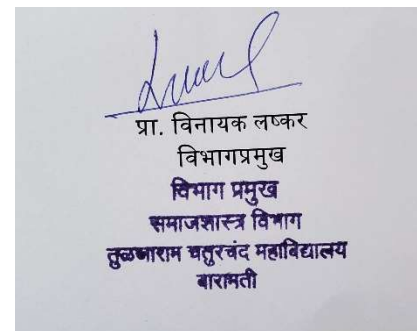 प्रा. विनायक लष्कर
विभागप्रमुख
विभाग प्रमुख
समाजशास्त्र विभाग
तुळजाराम चतुरचंद महाविद्यालय
बारामती